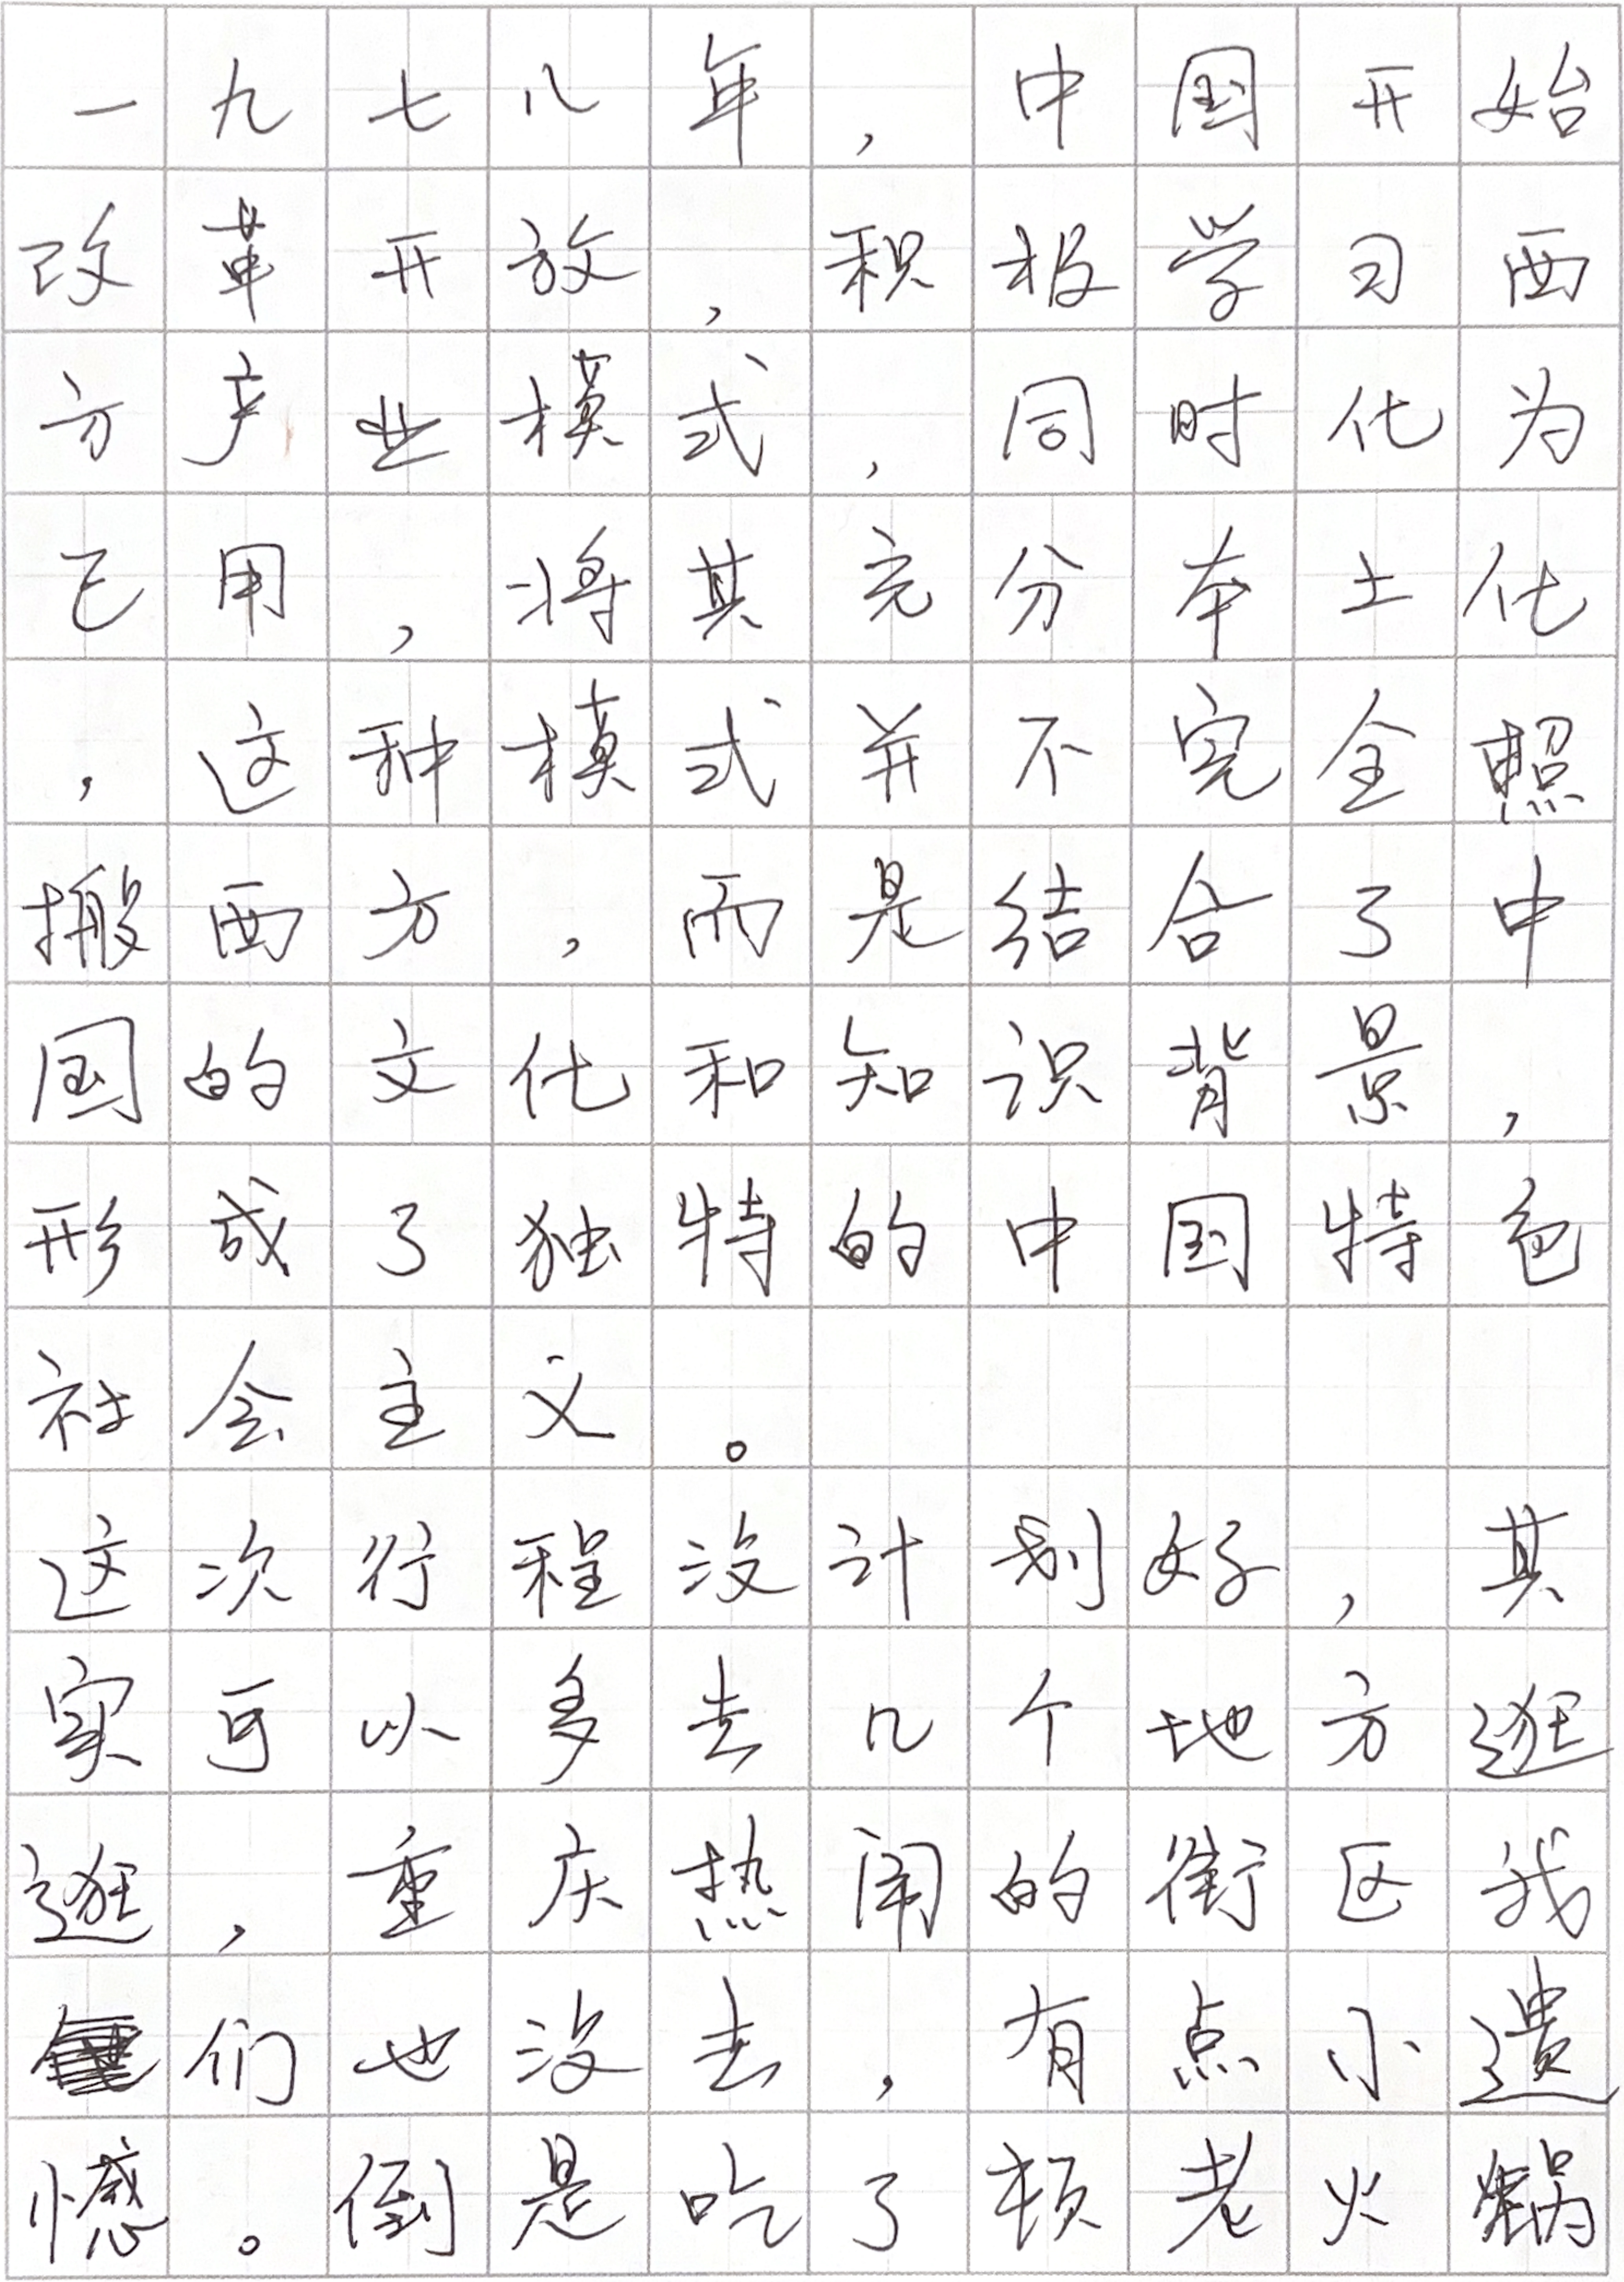 一九七八年，中国开始
改革开放，积极学习西
方产业模式，同时化为
己用，将其充分本土化
，这种模式并不完全照
搬西方，而是结合了中
国的文化和知识背景，
形成了独特的中国特色
社会主义。
这次行程没计划好，其
实可以多去几个地方逛
逛，重庆热闹的街区我
们也没去，有点小遗
憾。倒是吃了顿老火锅